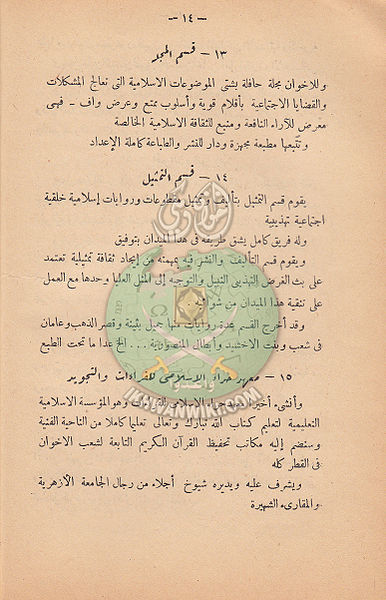 — ١٤ —
١٣ — قسم المجلة
وللاخوان مجلة حافلة بشتى الموضوعات الاسلامية التى تعالج المشكلات
والقضايا الاجتماعية بأقلام قوية وأسلوب ممتع وعرض واف - فهى
معرض للآراء النافعة ومنبع للثقافة الاسلامية الخالصة
وتتبعها مطبعة مجهزة ودار للنشر والطباعة كاملة الإعداد
١٤ — قسم التمثيل
يقوم قسم التمثيل بتأليف وتمثيل مقطوعات وروايات إسلامية خلقية
اجتماعية تهذيبية
وله فريق كامل يشق طريقه فى هذا الميدان بتوفيق
ويقوم قسم التأليف والنشر فيه بمهمته من إيجاد ثقافة تمثيلية تعتمد
على بث الغرض التهذيبى النبيل والتوجيه إلى المثل العليا وحدها مع العمل
على تنقية هذا الميدان من شوائبه
وقد أخرج القسم عدة روايات منها جميل بثينة وقصر الذهب وعامان
فى شعب وبنت الاخشيد وأبطال المنصورة ... الخ عدا ما تحت الطبع
١٥ — معهد حراء الاسلامى للقراءات والتجويد
وأنشىء أخيرا معهد حراء الاسلامى للقراءات وهو المؤسسة الاسلامية
التعليمية لتعليم كتاب الله تبارك وتعالى تعليما كاملا من الناحية الفنية
وستضم إليه مكاتب تحفيظ القرآن الكريم التابعة لشعب الاخوان
فى القطر كله
ويشرف عليه ويديره شيوخ أجلاء من رجال الجامعة الأزهرية
والمقارىء الشهيرة
وأعدوا
IKHWANWIKI.COM